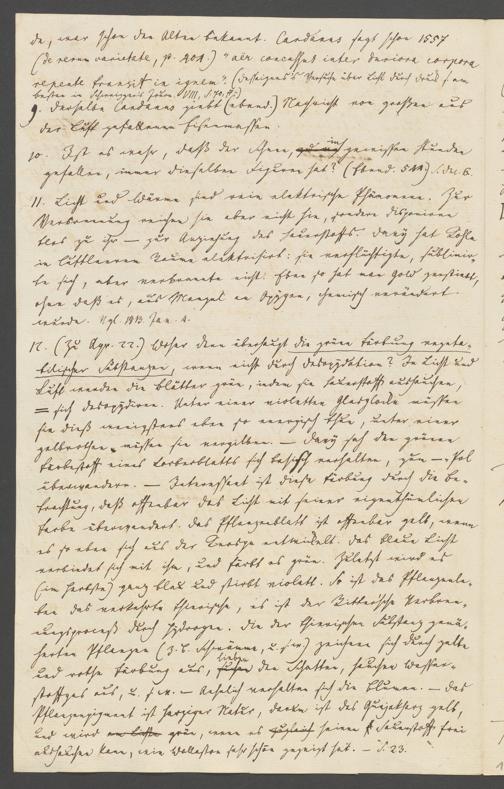 da, war schon den Alten bekannt. Cardanus sagt schon 1557
(de rerum varietate, p. 401.) "aër concussus inter duriora corpora
repente transit in ignem". (Dessaignes's Versuche über Licht durch Druck
besten in Schweiggers Journ. VIII,
9. Derselbe Cardanus giebt (ebend.) Nachricht von großen aus
der Luft gefallenen Eisenmassen.
10. Ist es wahr, daß der Schnee, in gewissen Stunden
gefallen, immer dieselben Figuren hat? (Ebend. 511)
11. Licht und Wärme sind rein elektrische Phänomene. Zur
Verbrennung reichen sie aber nicht hin, sondern disponiren
blos zu ihr — zur Anziehung des Sauerstoffs. Davy hat Kohle
im luftleeren Raume elektrisirt: sie verflüchtigte, sublimir-
te sich, aber verbrannte nicht. Eben so hat man Gold zerstäubt,
ohne daß es, aus Mangel an Oxygen, chemisch verändert
wurde. Vgl. 1813 Jan. 4.
12. (Zu Apr. 22.) Woher denn überhaupt die grüne Färbung vegeta-
bilischer Substanzen, wenn nicht durch Desoxydation? In Licht und
Luft werden die Blätter grün, indem sie Sauerstoff aushauchen,
= sich desoxydiren. Unter einer violetten Glasglocke müssen
sie dieß wenigstens eben so energisch thun, unter einer
gelbrothen müssen sie vergilben. — Davy sah den grünen
Färbestoff eines Lorberblatts sich basisch verhalten, zum — Pol
überwandern. — Interessant ist diese Färbung durch die Be-
trachtung, daß offenbar das Licht mit seiner eigenthümlichen
Farbe überwandert. Das Pflanzenblatt ist offenbar gelb, wenn
es so eben sich aus der Knospe entwickelt. Das blaue Licht
verbindet sich mit ihm, und färbt es grün. Zuletzt wird es
(im Herbste) ganz blau und stirbt violett. So ist das Pflanzenle-
ben das verkehrte thierische, es ist der Ritterische Verbren-
nungsproceß durch Hydrogen. Die der thierischen Substanz genä-
herten Pflanzen (z. B. Schwämme, u. s. w.) zeichnen sich durch gelbe
und rothe Färbung aus, lieben den Schatten, hauchen Wasser-
stoffgas aus, u. s. w. — Aehnlich verhalten sich die Blumen. — Das
Pflanzenpigment ist harziger Natur, darum ist das Guajakharz gelb,
und wird grün, wenn es seinen Sauerstoff frei
aushauchen kann, wie Wollaston sehr schön gezeigt hat. — S. 23.